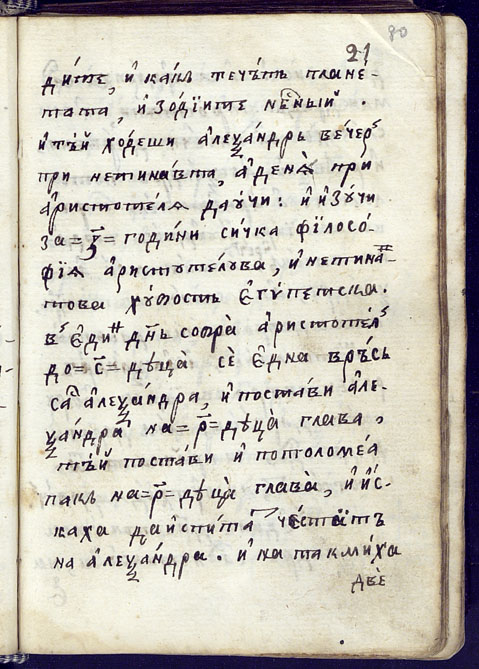 21 80
ди́те, и҆ какъ тече́тъ плане-
тата, и҆ зо́дїите не́бныи҆ .
и҆ тъ́й хо́деши а҆леѯа́ндръ ве́черъ
при нетина́вта, а҆ деня̀ при
а҆ристоте́ля да у҆чи : и҆ и҆зꙋ́чи
за = з҃ = годи́ни си́чка фїлосо́-
фїя а҆ристоте́лова, и҆ нетина-
това хи́трость є҆гѵ́петска .
въ є҆ди́н дн҃ь собра̀ а҆ристоте́лъ
до = с҃ = дѣца̀ сѐ є҆дна връ́сь
са а҆леѯа́ндра, и҆ поста́ви а҆ле-
ѯа́ндра на = р҃ = дѣца̀ глава ,
тъ́й поста́ви и҆ потоломе́а
пакъ на = р҃ = дѣца̀ глава̀, и҆ и҆с-
каха да и҆спи́та че́статъ
на а҆леѯа́ндра . и҆ на такми́ха
двѐ